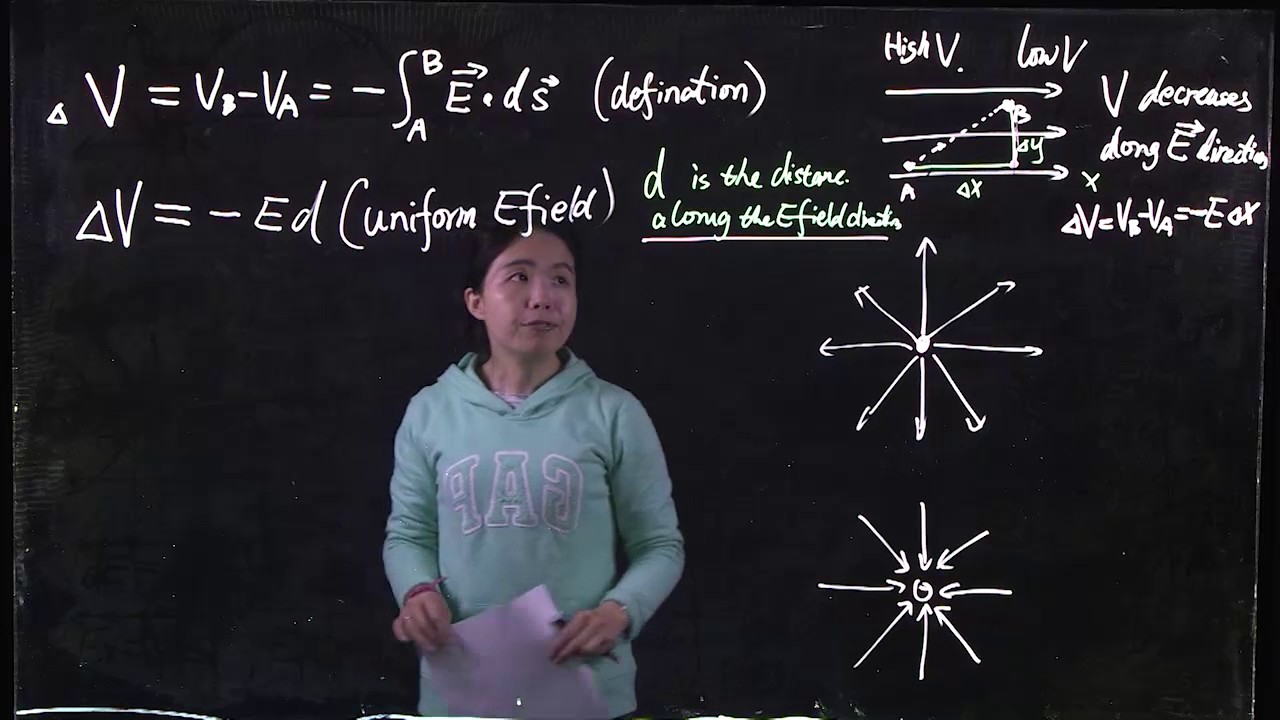 △ V = V_B - V_A = - ∫_A^B E⃗ • d s⃗ (defination)
ΔV = - E d (uniform E field)
d is the distane.
alonug the E field direction
High V. low V
V decreases
along E⃗ direction
B
Δy
A
Δx
x
ΔV = V_B - V_A = -E Δx
GAP